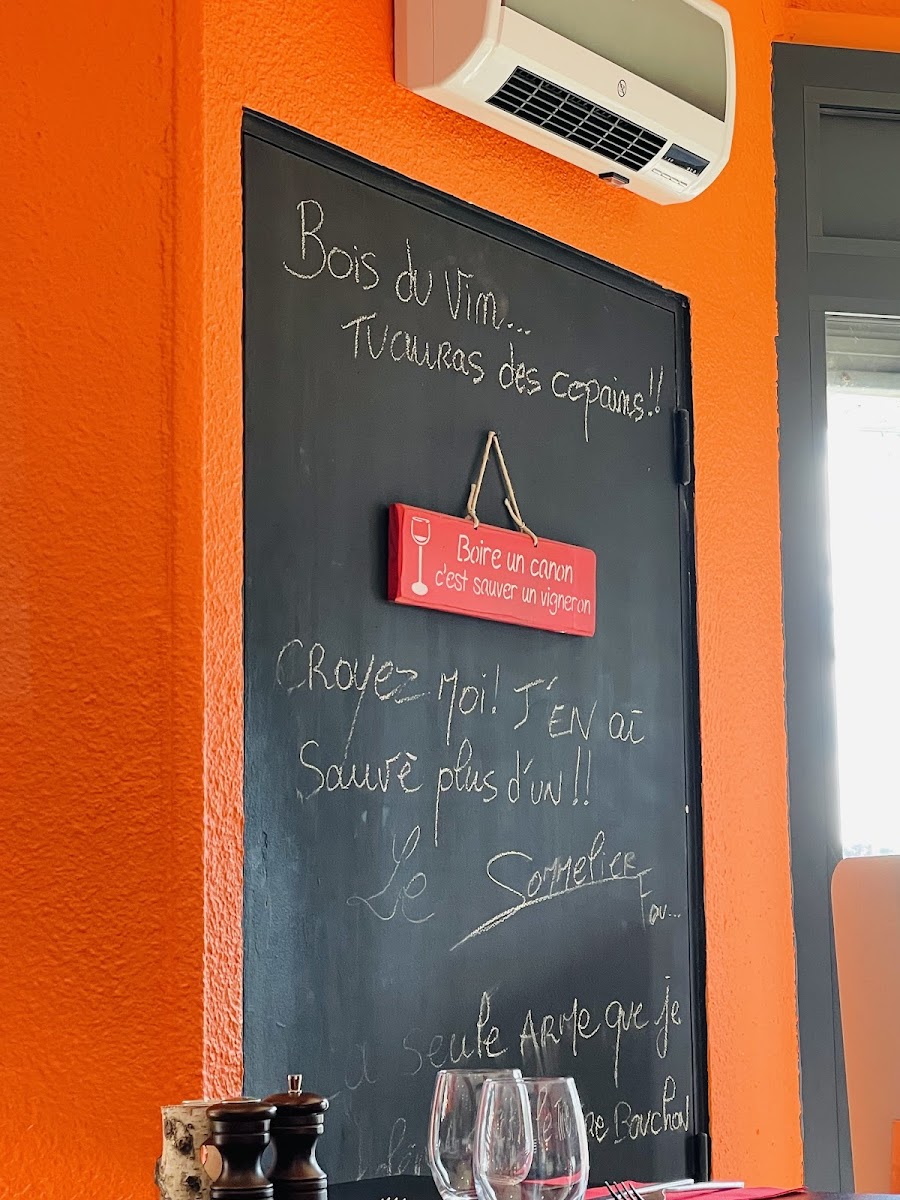 Bois du Vin...
Tu auras des copains!!
Boire un canon
c'est sauver un vigneron
CROYEZ Moi! J'EN ai
Sauvé plus d'un!!
Le Sommelier
Fou...
seule ARME que je
Bouchon